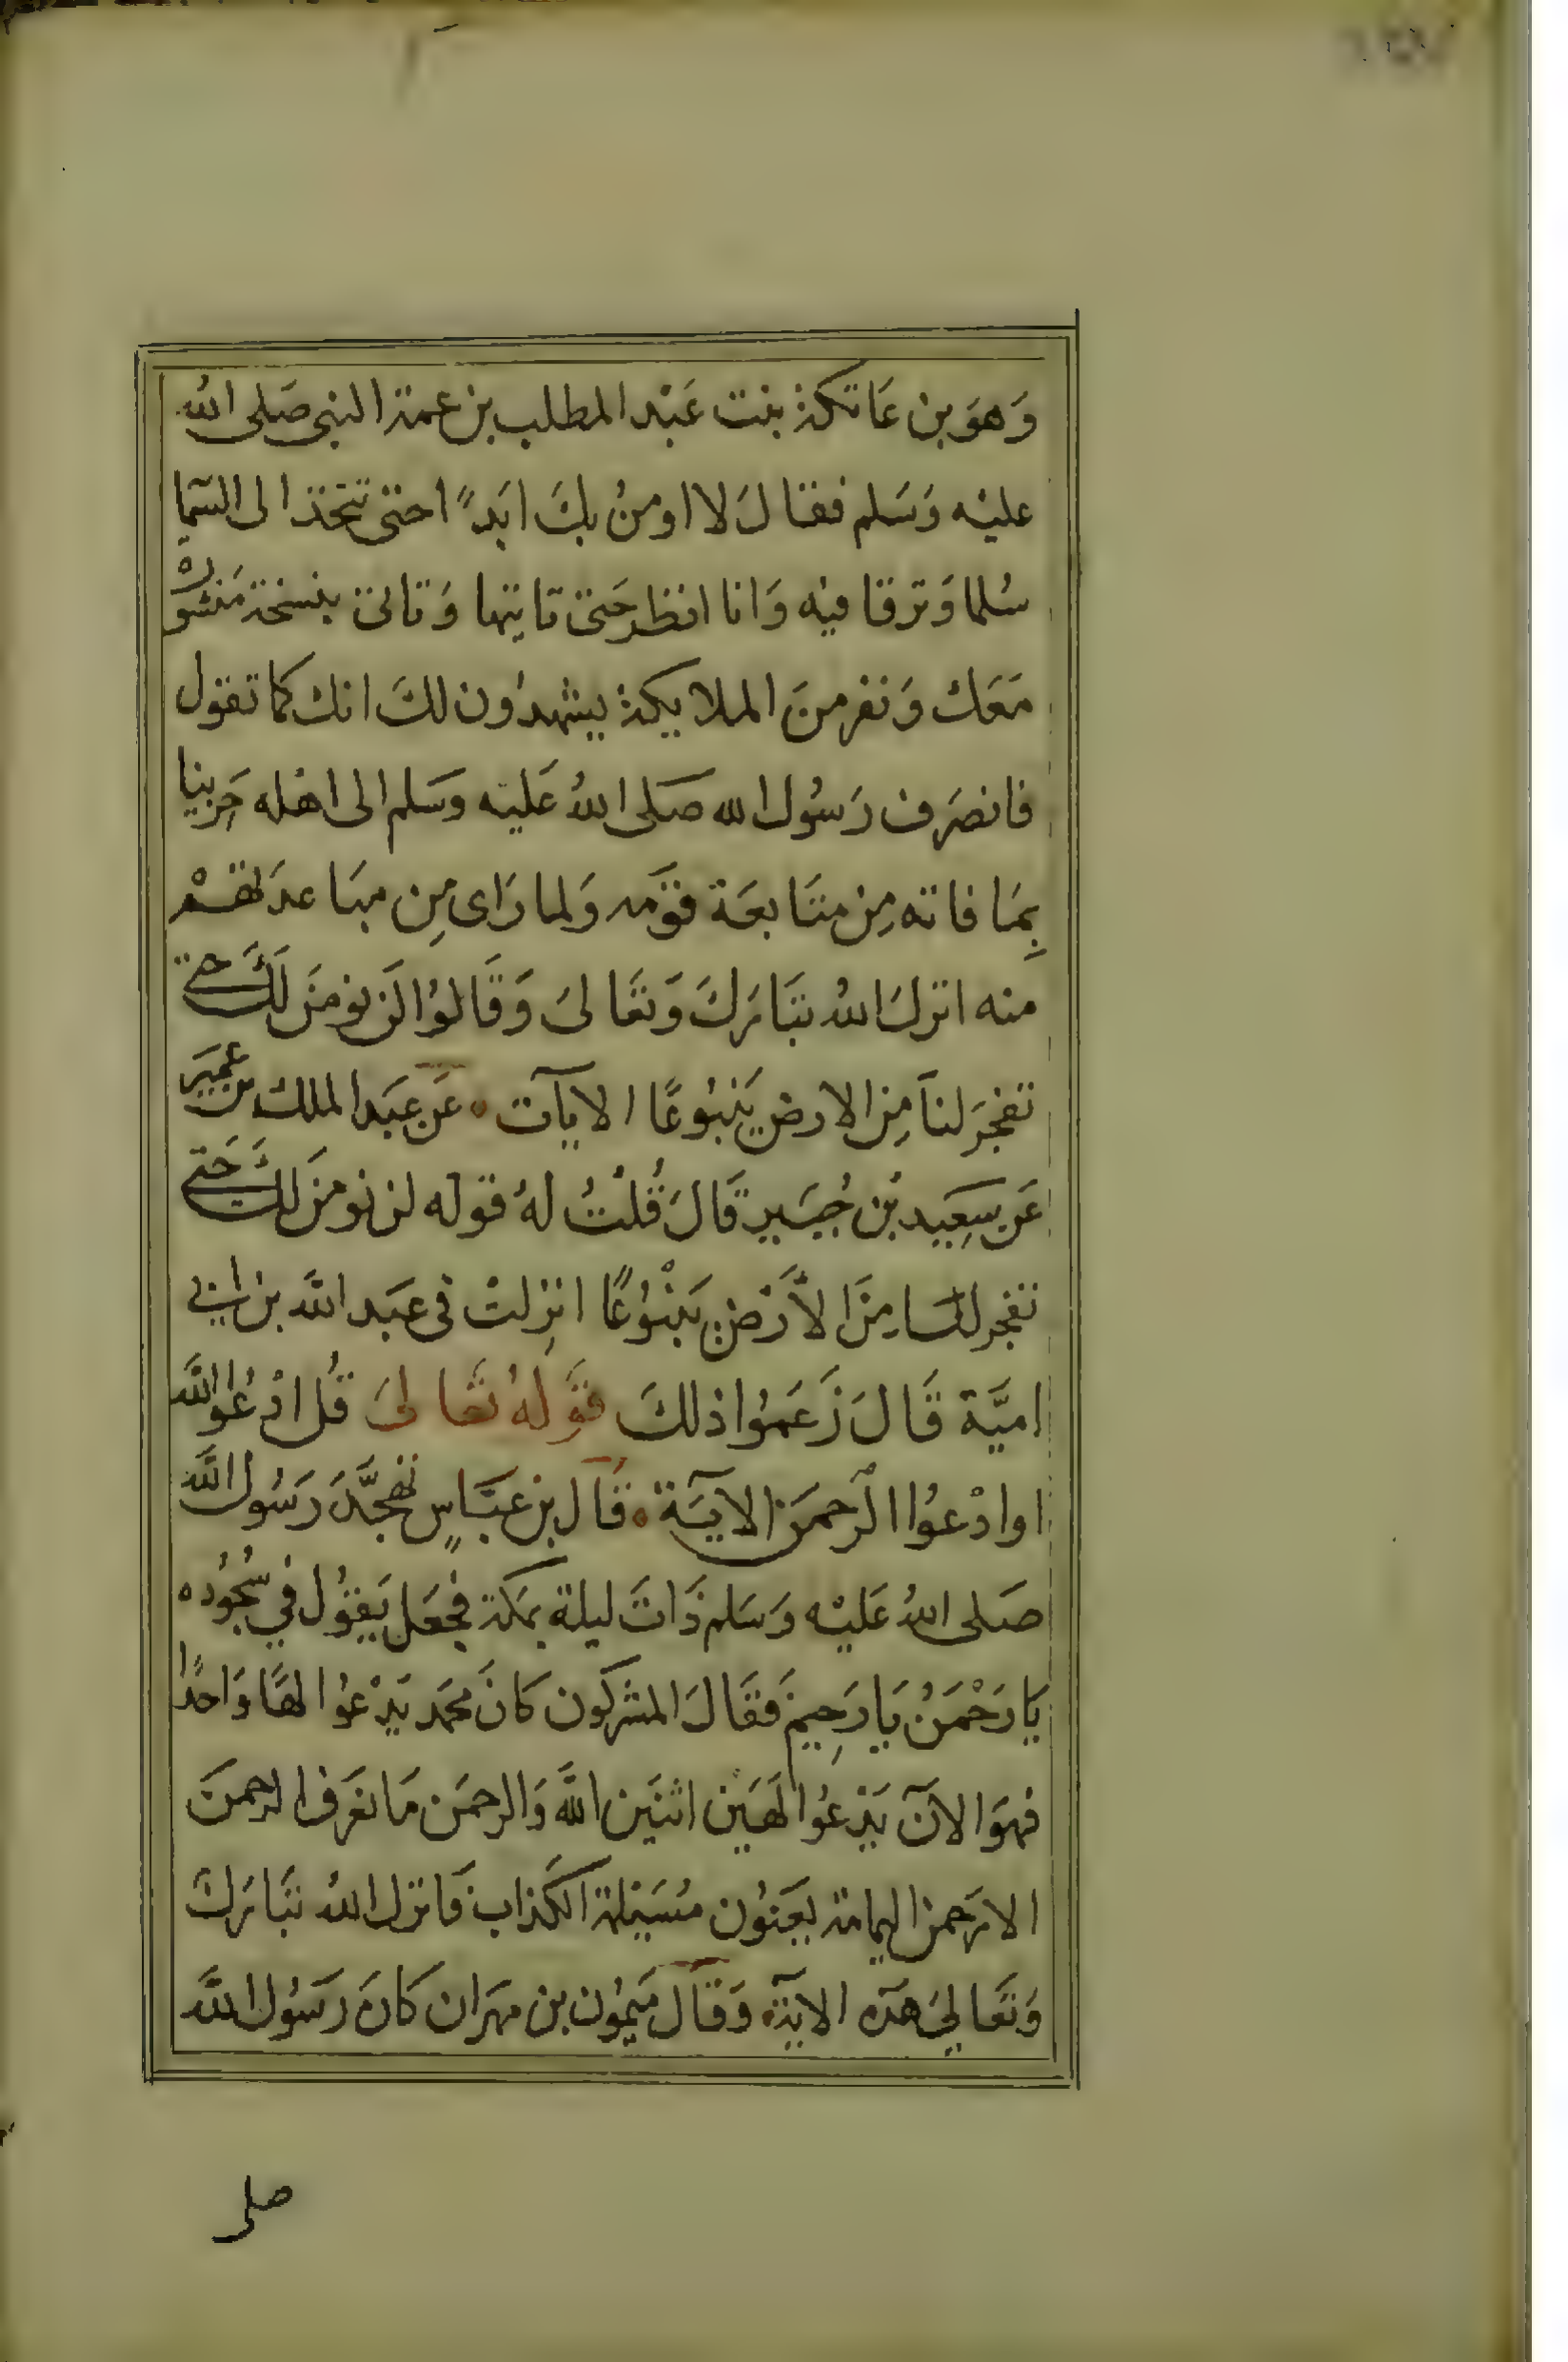 وَهوَ بن عَاتكة بنت عَبْد المطلب بن عمة النبى صَلى اللهُ
عليْه وَسَلم فقالَ لا اومنُ بكَ ابَدًا حتى تتخذ الى السّما
سُلما وَترقا فيْه وَانا انظر حَتى تاتيها وَتاتى بنسخة مَنشوره
مَعَك وَنفر منَ الملايكة يشهدُون لكَ انك كما تقول
فانصَرَف رَسُول الله صَلى اللهُ عَليْه وسَلم الى اهْله حَزينا
بِمَا فاته مِن متَابعَة قوْمه وَلما رَاى مِن مبَاعدَتهمْ
منه انزلَ اللهُ تبَارَكَ وَتعَالىَ وَقَالوُا لَن نومنَ لَكَ حَتى
تفجرَ لناَ مِن الارض يَنبُوعًا الايآت ۰ عَن عبَد الملك بن عُميَر
عَن سَعِيد بْن جُبَير قَالَ قُلْتُ لهُ قوله لن نومنَ لكَ حَتى
تفجر لنَا مِنَ الأَرْض يَنْبُوُعًا انزِلتْ فى عبَد اللَّه بن ابىِ
اميَّة قَالَ زَعَمُوا ذلكَ قوَلهُ تعَالىَ قُل ادْعُوا اللَّه
اوادْعوُا الرَحمَن الايَة ۰ قَال بن عَبَّاسٍ تهجَّدَ رَسُول اللَّه
صَلى اللهُ عَليْه وَسَلم ذَاتَ ليلة بمَكة فجعَل يَقوُل في سُجُوُده
يَا رَحْمَنُ يَا رَحِيمُ فَقَالَ المشركون كانَ محمَد يَدْعوُا الهًا وَاحدًا
فهوَ الآنَ يَدْعوُا الَهَيْن اثنَين اللَّه وَالرحمَن مَا نعَرف الرحمنَ
الا رَحمن اليمامة يعَنوُن مُسَيْلمة الكَذاب فَانزل اللهُ تبَارَكَ
وَتعَالىَ هَذه الايَة ۰ وَقَال مَيمُون بن مهرَان كَانَ رَسُول اللَّه
صلى